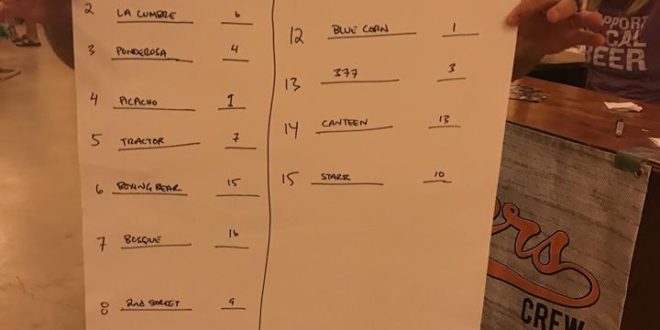 2 LA CUMBRE 6
3 PONDEROSA 4
4 PICACHO 1
5 TRACTOR 7
6 BOXING BEAR 15
7 BOSQUE 16
8 2ND STREET 9
12 BLUE CORN 1
13 377 3
14 CANTEEN 13
15 STARR 10
SUPPORT
CAL
BEER
ers
CREW